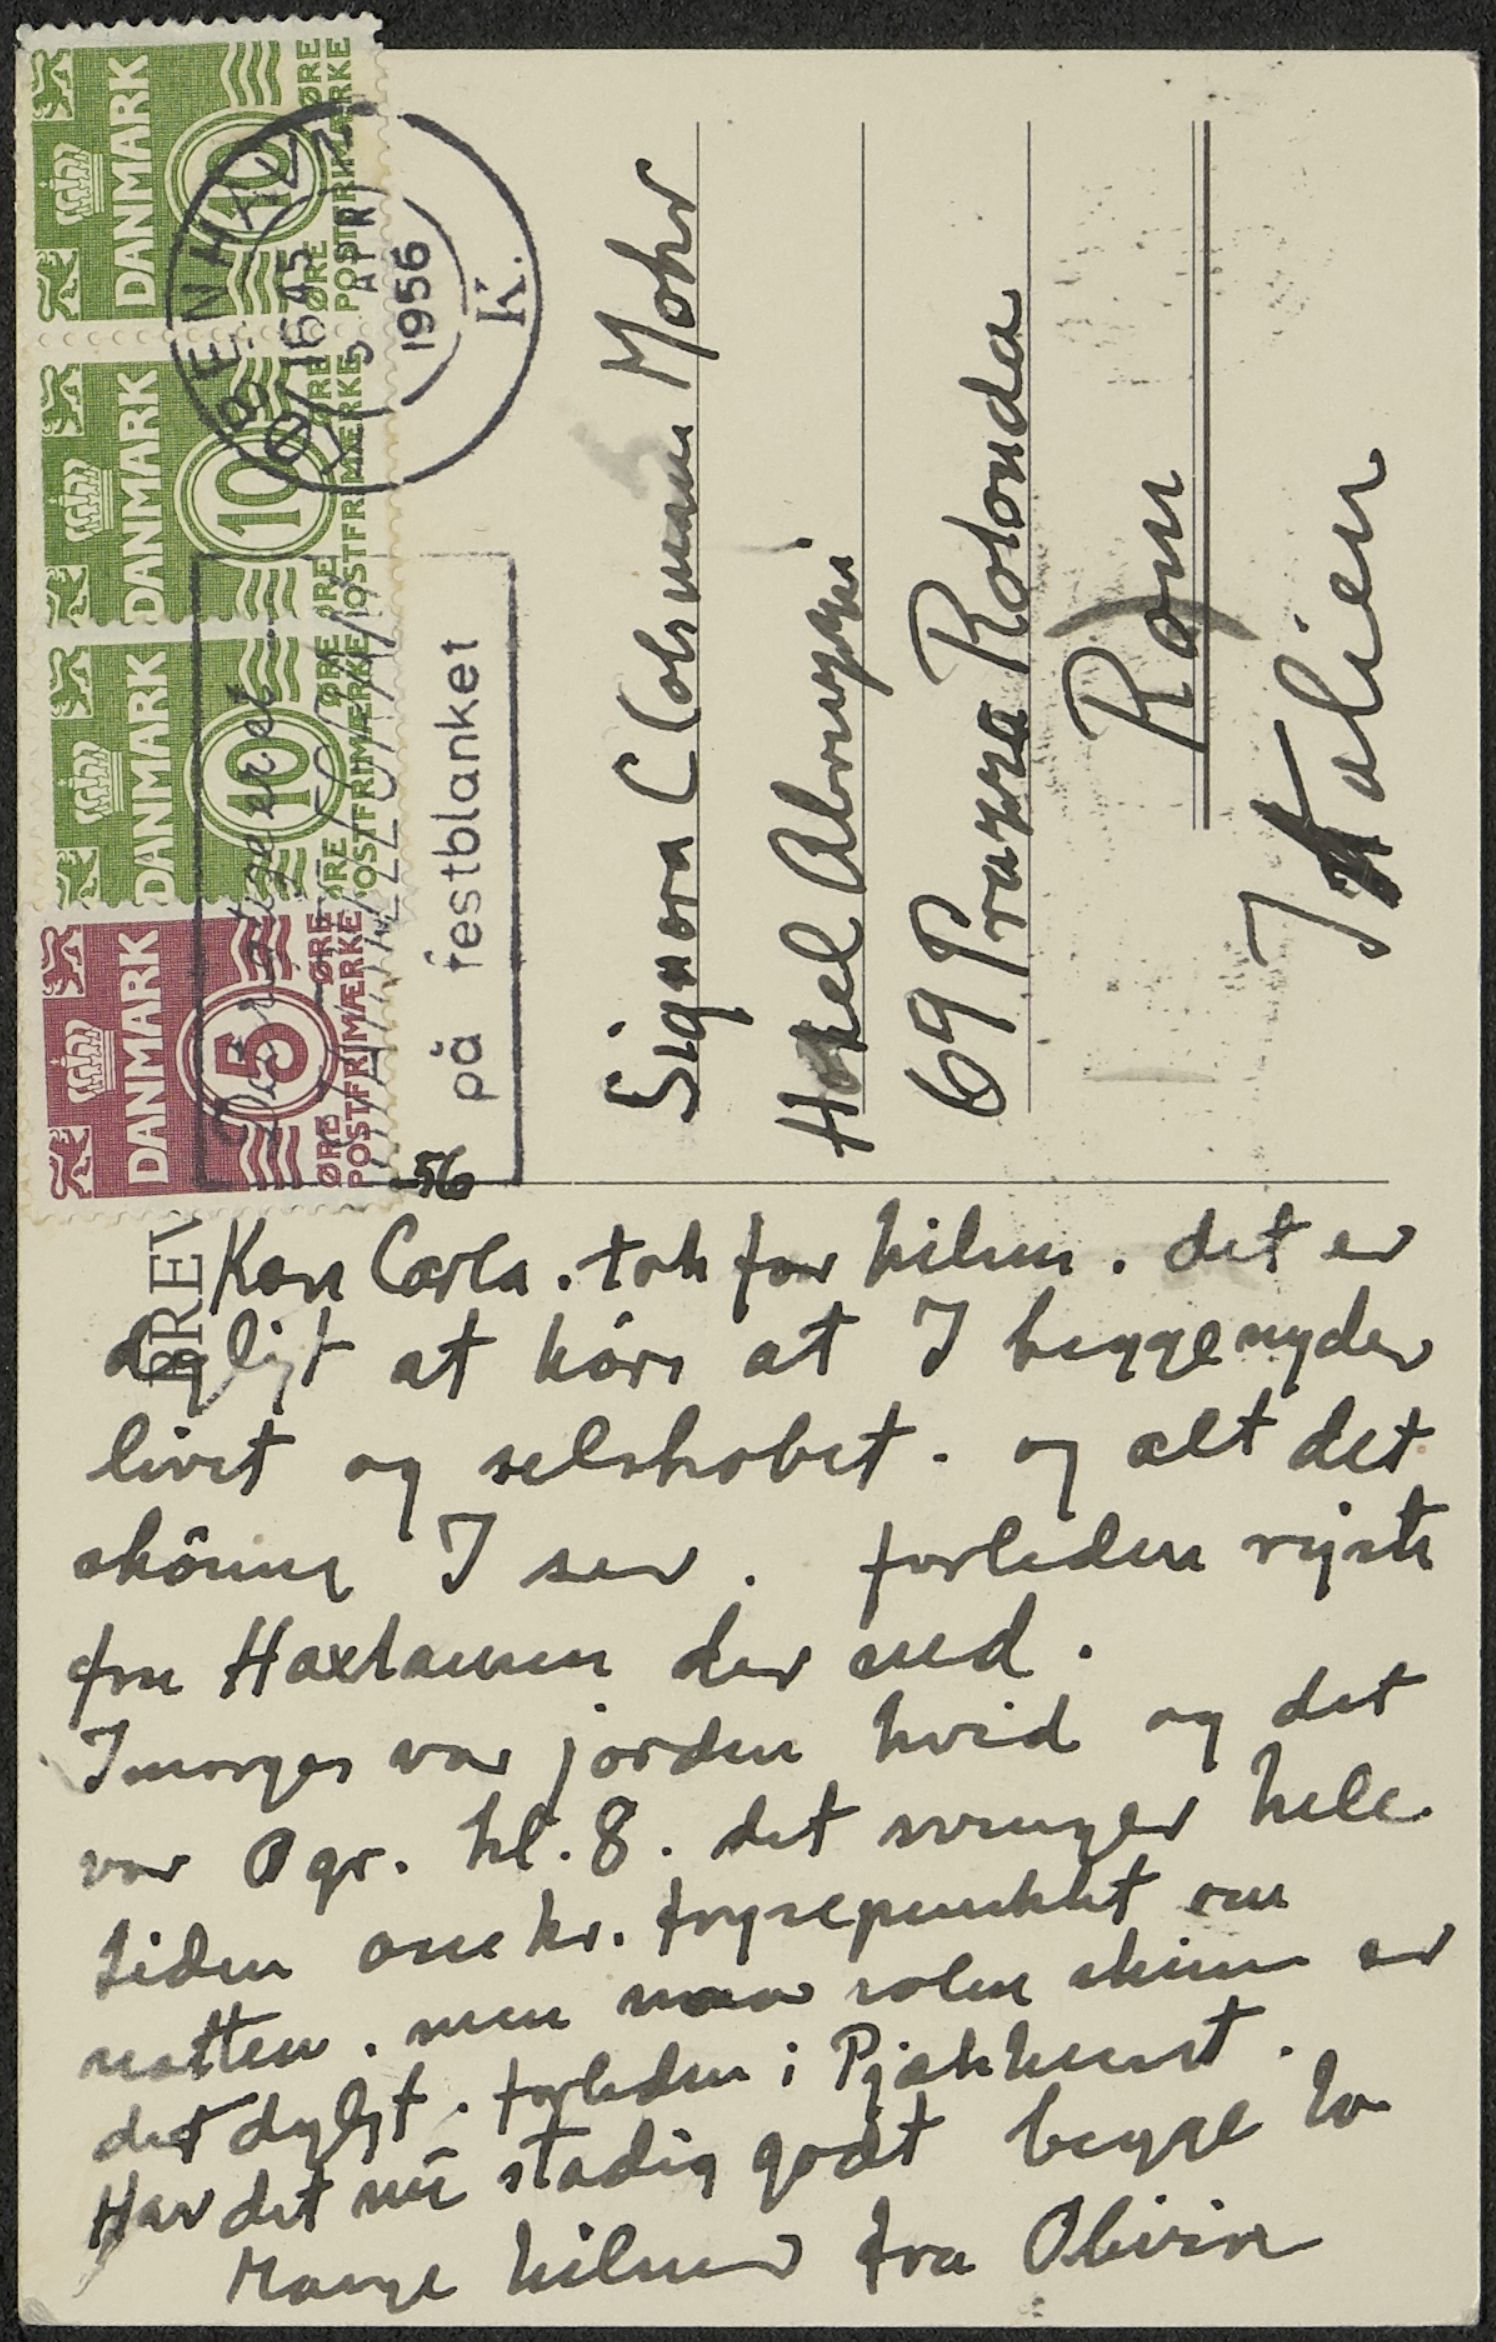 DANMARK 10 ØRE ØRE POSTFRIMÆRKE
DANMARK 10 ØRE ØRE POSTFRIMÆRKE
DANMARK 10 ØRE ØRE POSTFRIMÆRKE
DANMARK 5 ØRE ØRE POSTFRIMÆRKE
KØBENHAVN
16 45
5 APR
1956
K.
på festblanket
Signora C Colsmann Mohr
Hotel Abruzzi
69 Piazza Rotonda
Rom
Italien
56
BREV
Kære Carla. tak for hilsen. det er
dejligt at høre at I begge nyder
livet og selskabet. og alt det
skønne I ser. forleden rejste
fru Haxtausen der ned.
Imorges var jorden hvid og det
var 0 gr. kl. 8. det svinger hele
tiden omkr. frysepunktet om
natten. men naar solen skinner er
det dejligt. forleden i Pjækkunst.
Har det nu stadig godt begge to
Mange hilsner fra Olivia